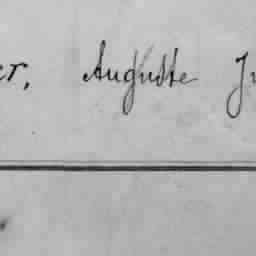 er, Auguste